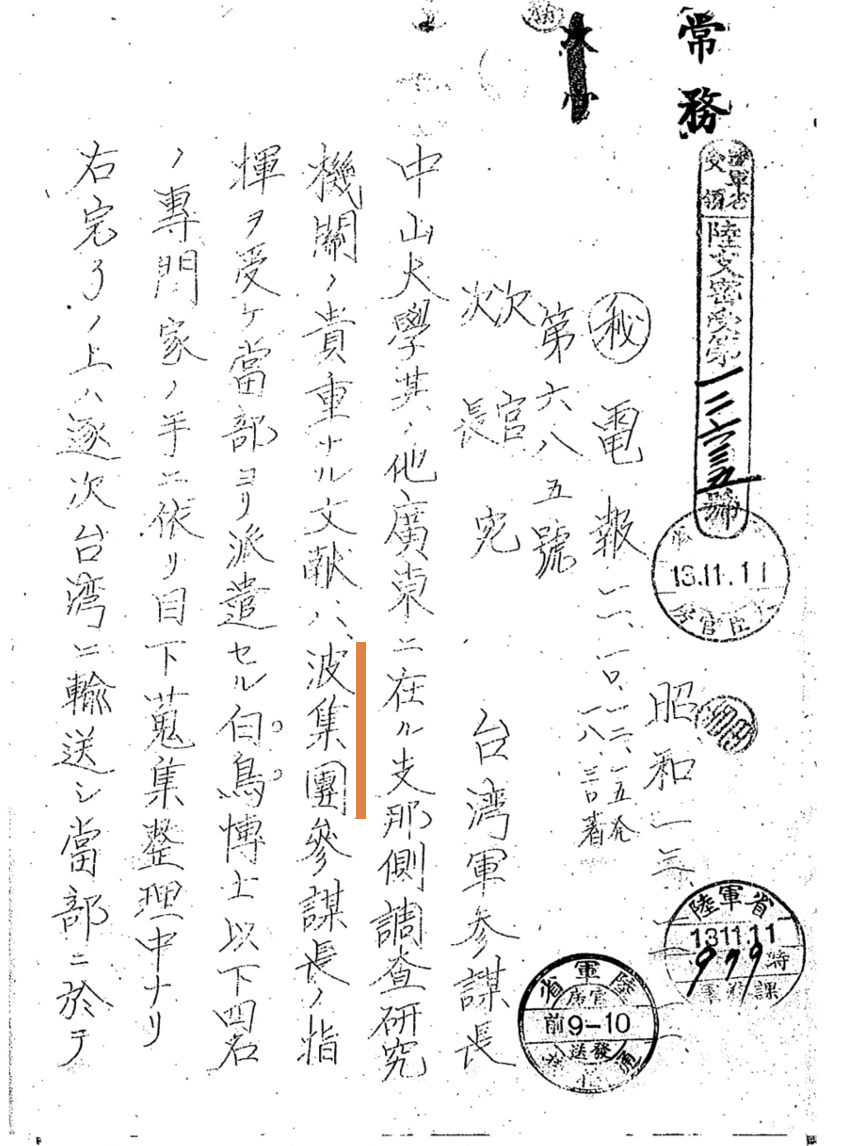 常務
陸軍省受領
陸支密受第一二六三五號
13.11.11
昭和一三、一一、一一
陸軍省
13.11.11
979
課
㊙電報 一一、一〇、一二、一五発
一八、三〇着
第六八五號
次官
次長 宛
陸軍省
前9-10
發送
台湾軍参謀長
中山大學其ノ他廣東ニ在ル支那側調査研究
機關ノ貴重ナル文献ハ、波集團參謀長ノ指
揮ヲ受ケ當部ヨリ派遣セル白鳥博士以下四名
ノ專門家ノ手ニ依リ目下蒐集整理中ナリ
右完了ノ上ハ逐次台湾ニ輸送シ當部ニ於テ